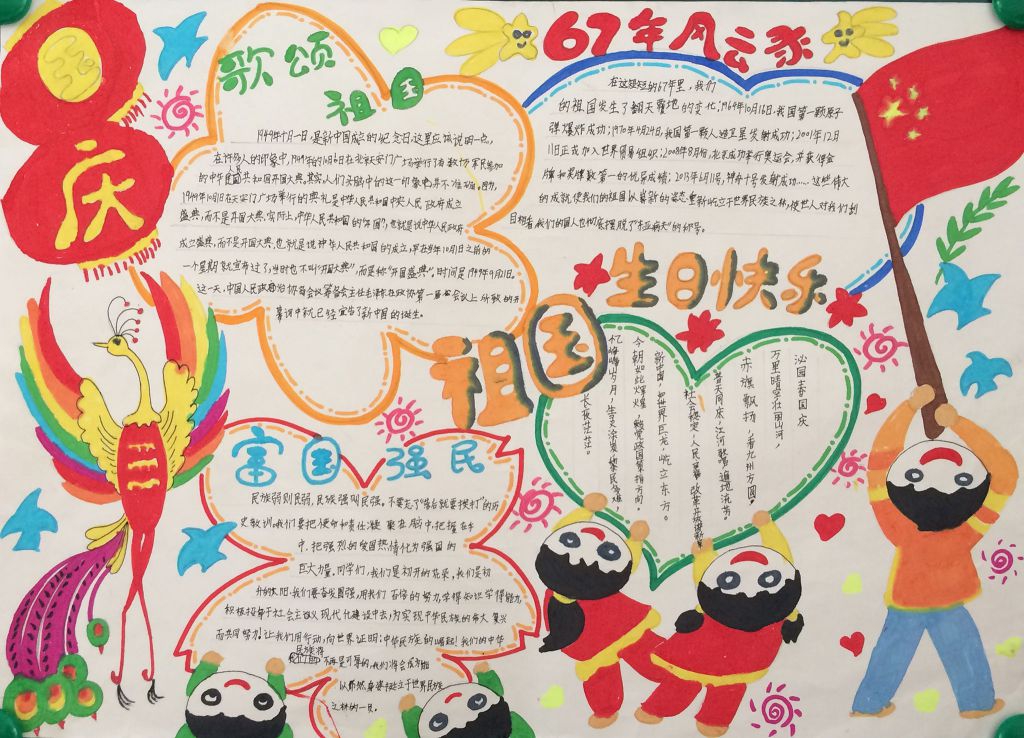 国庆
歌颂
祖国
1949年10月1日是新中国成立的纪念日,这里应该说明一点,
在许多人的印象中,1949年的10月1日在北京天安门广场举行了有数十万军民参加
的中华人民共和国开国大典。其实,人们头脑中的这一印象并不准确。因为,
1949年10月1日在天安门广场举行的典礼是中华人民共和国中央人民政府成立
盛典,而不是开国大典。实际上,中华人民共和国的"开国",也就是说中华人民政府
成立盛典,而不是开国大典,也就是说中华人民共和国的成立,早在当年10月1日之前的
一个星期就宣布过了,当时也不叫"开国大典",而是称"开国盛典"。时间是1949年9月21日。
这一天,中国人民政治协商会议筹备会主任毛泽东在政协第一届全会议上所致的开
幕词中就已经宣告了新中国的诞生。
67年风云录
在这短短的67年里,我们
的祖国发生了翻天覆地的变化;1964年10月16日,我国第一颗原子
弹爆炸成功;1970年4月24日,我国第一颗人造卫星发射成功;2001年12月
11日正式加入世界贸易组织;2008年8月8日,北京成功举行奥运会,并获得金
牌和奖牌数第一的优异成绩;2013年6月11号,神舟十号发射成功……这些伟大
的成就使我们的祖国以崭新的姿态重新屹立于世界民族之林,使世人对我们刮
目相看,我们的国人也彻底摆脱了"东亚病夫"的称号。
祖国
生日快乐
沁园春国庆
万里晴空壮丽山河,
赤旗飘扬,看九州方圆。
普天同庆,江河歌唱遍地流芳。
社会稳定,人民幸福,改革开放谱新章
新中国,如世界巨龙,屹立东方。
今朝如此辉煌,
忆峥嵘岁月,生灵涂炭
长夜茫茫。
富国强民
民族弱则民弱,民族强则民强。不要忘了"落后就要挨打"的历
史教训,我们要把使命和责任凝聚在脑中,把握在手
中,把强烈的爱国热情化为强国的
巨大力量。同学们,我们是初开的花朵,我们是初
升的太阳,我们要奋发图强,用我们百倍的努力,学得知识学得能力
积极投身于社会主义现代化建设中去,为实现中华民族的伟大复兴
而共同努力!让我们用行动,向世界证明:中华民族的崛起!我们的中华
民族将
不再是可辱的,我们将会成为能
以昂然身姿挺立于世界民族
之林的一员。